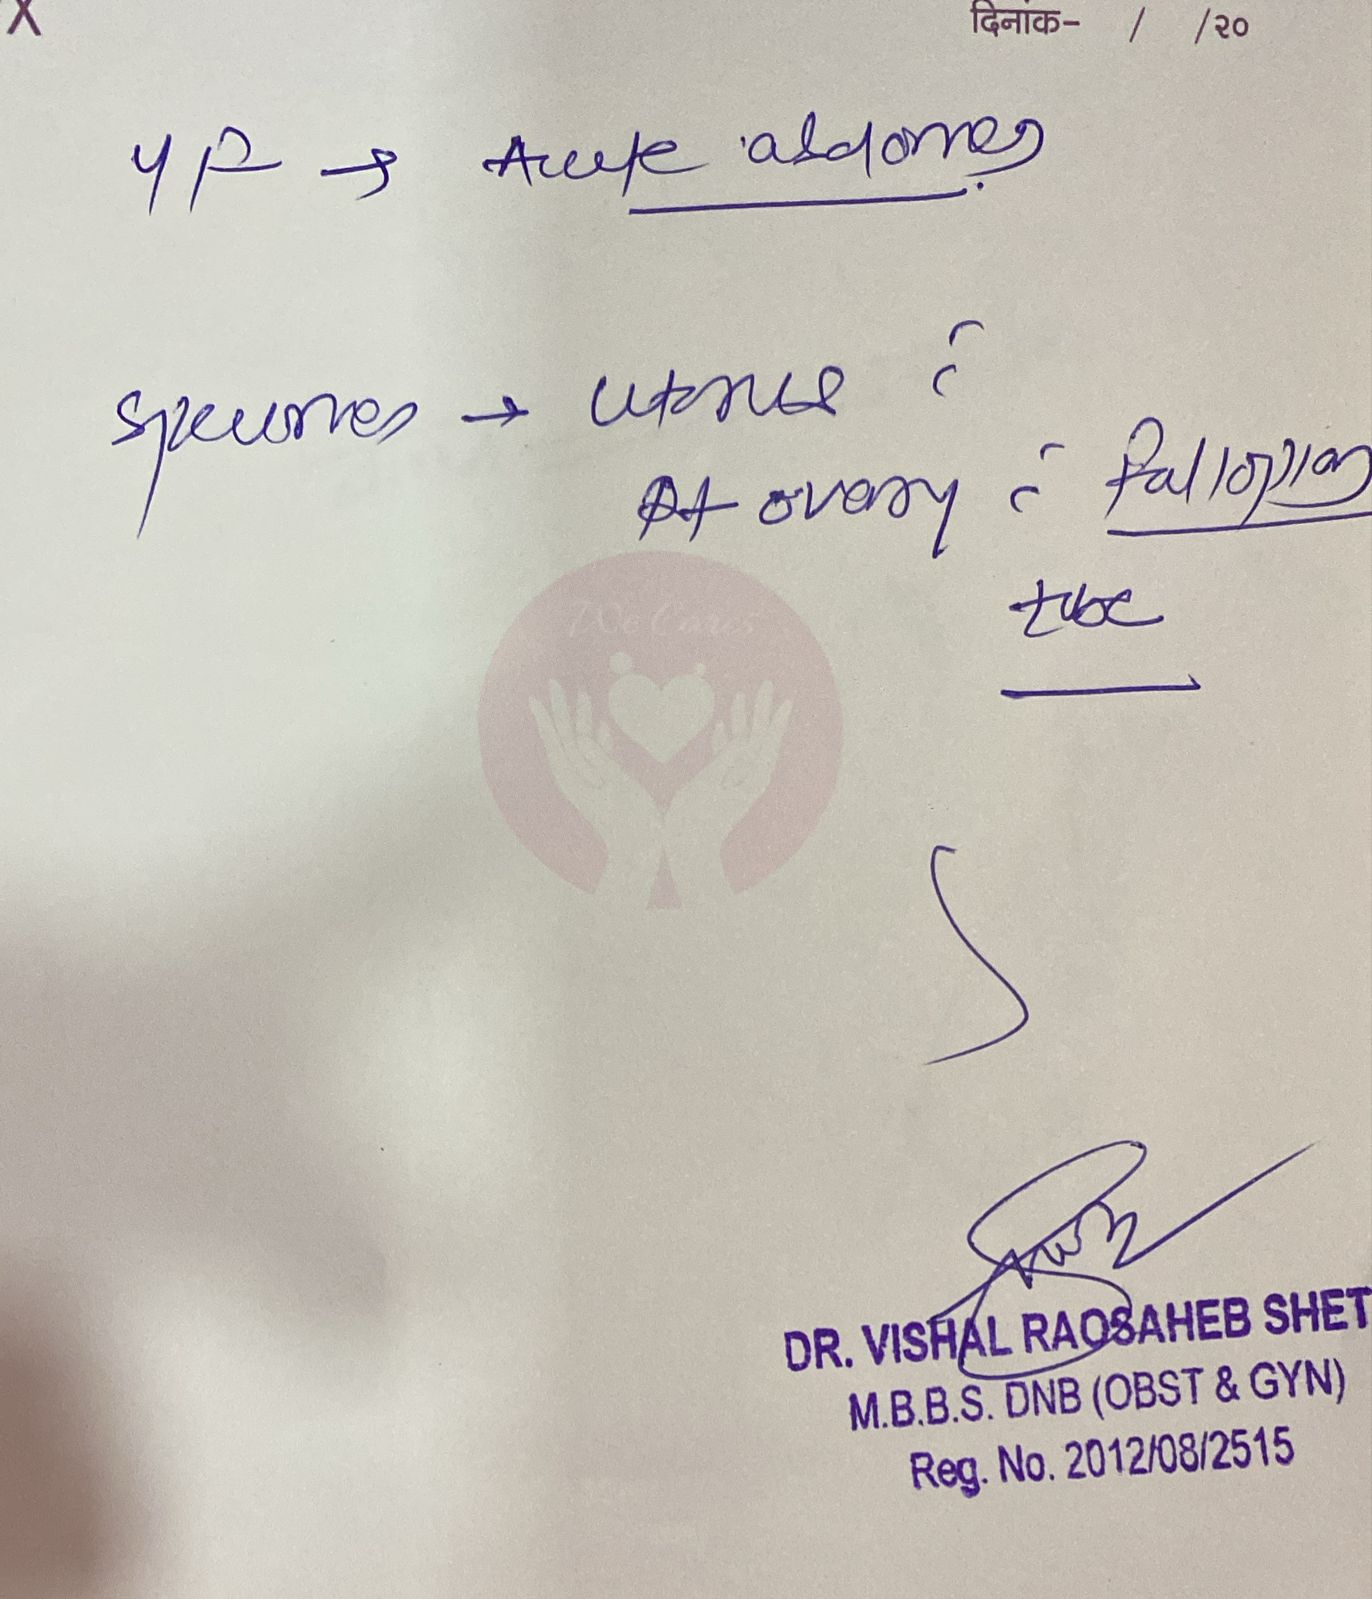 X
दिनांक- / /२०
Y/P → Acute abdomen.
specimen → uterus c̄
Rt ovary c̄ fallopian
tube
We Cares
DR. VISHAL RAOSAHEB SHET
M.B.B.S. DNB (OBST & GYN)
Reg. No. 2012/08/2515